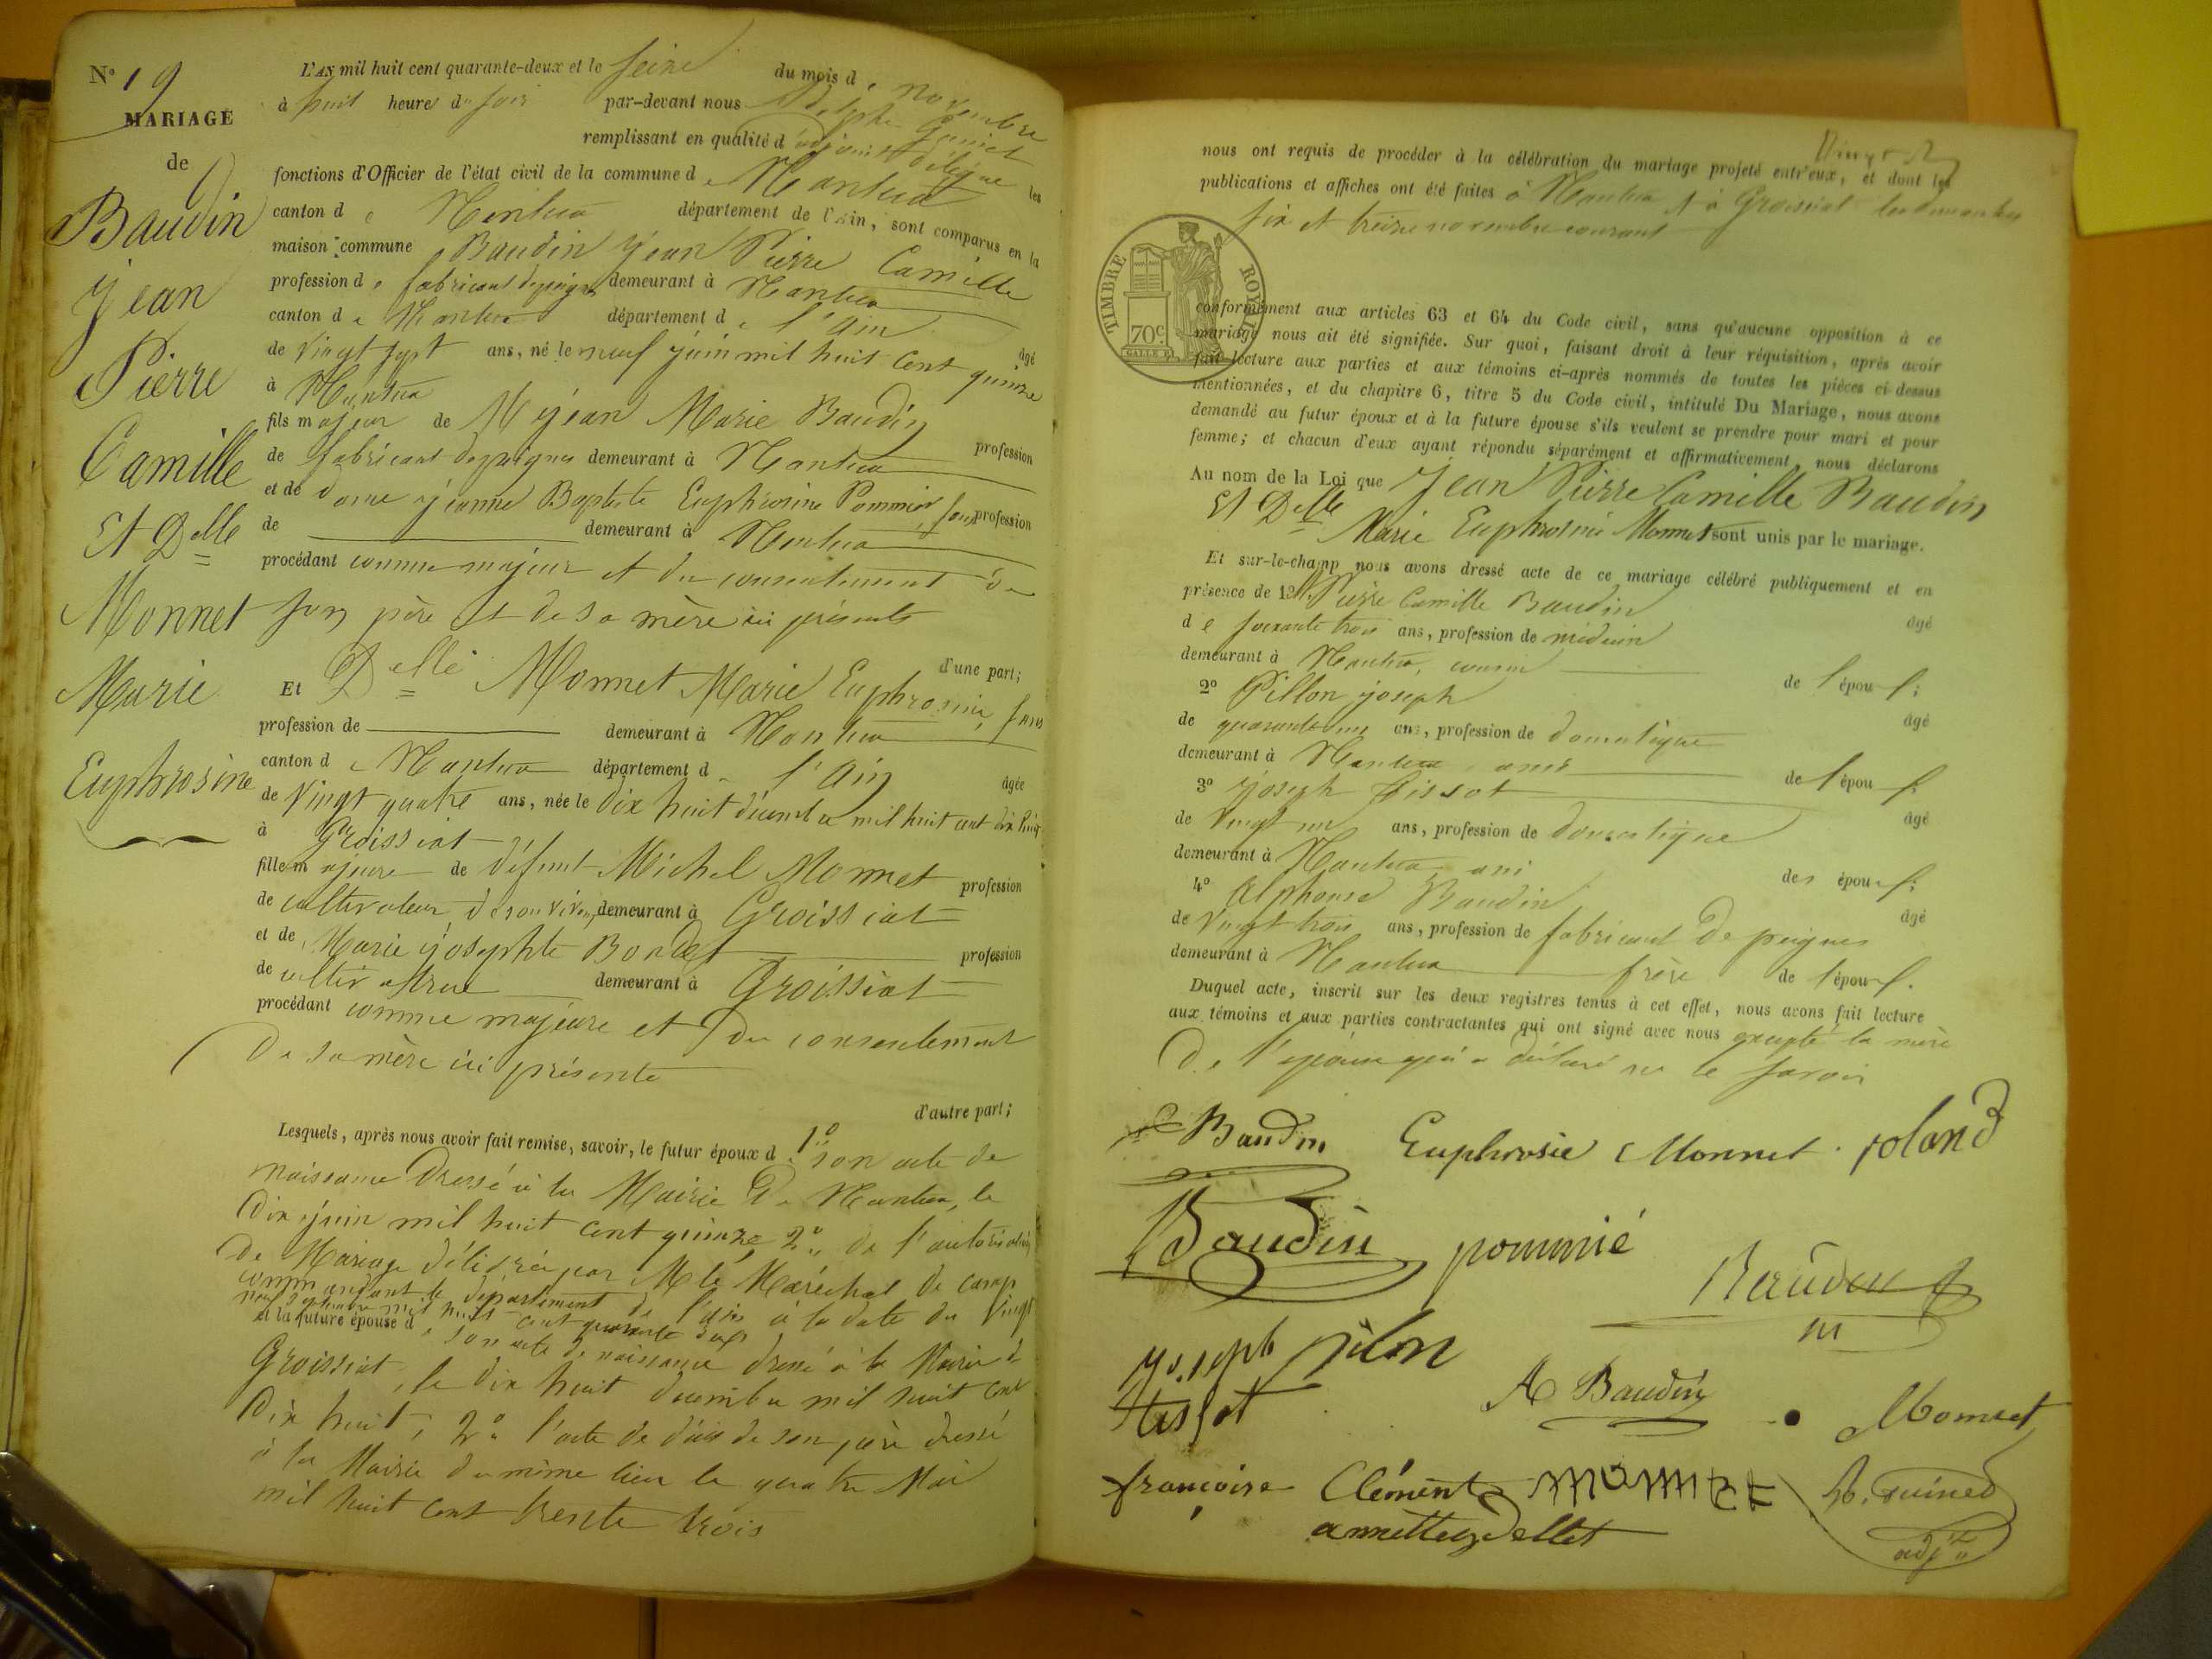 N° 19
MARIAGE
de
Baudin
Jean
Pierre
Camille
Et Delle
Monnet
Marie
Euphrosine
L'AN mil huit cent quarante-deux et le seize du mois de novembre
à huit heure du soir par-devant nous
remplissant en qualité d'adjoint délégué les
fonctions d'Officier de l'état civil de la commune de Nantua
canton de Nantua département de l'Ain, sont comparus en la
maison commune Baudin Jean Pierre Camille
profession de fabricant de peignes demeurant à Nantua
canton de Nantua département de l'Ain âgé
de vingt sept ans, né le neuf juin mil huit cent quinze
à Nantua
fils majeur de Mr Jean Marie Baudin profession
de fabricant de peignes demeurant à Nantua
et de dame Jeanne Baptiste Euphrosine Pommier sans profession
de demeurant à Nantua
procédant comme majeur et du consentement de
son père et de sa mère ici présents
d'une part;
Et Delle Monnet Marie Euphrosine, sans
profession de demeurant à Nantua
canton de Nantua département de l'Ain âgée
de vingt quatre ans, née le dix huit décembre mil huit cent dix huit
à Groissiat
fille majeure de défunt Michel Monnet profession
de cultivateur de son vivant demeurant à Groissiat
et de Marie Josephte Bondet profession
de cultivatrice demeurant à Groissiat
procédant comme majeure et du consentement
de sa mère ici présente
d'autre part;
Lesquels, après nous avoir fait remise, savoir, le futur époux d 1° son acte de
naissance dressé à la Mairie de Nantua, le
dix juin mil huit cent quinze 2° de l'autorisation
de Mariage délivrée par M le Maréchal de camp
commandant le département de l'Ain à la date du vingt
neuf septembre mil huit cent quarante deux
et la future épouse d, son acte de naissance dressé à la Mairie de
Groissiat, le dix huit décembre mil huit cent
dix huit, 2° l'acte de décès de son père dressé
à la Mairie du même lieu le quatre Mai
mil huit cent trente trois
nous ont requis de procéder à la célébration du mariage projeté entr'eux, et dont les
publications et affiches ont été faites à Nantua et à Groissiat les dimanches
six et treize novembre courant
TIMBRE ROYAL
70c.
conformément aux articles 63 et 64 du Code civil, sans qu'aucune opposition à ce
mariage nous ait été signifiée. Sur quoi, faisant droit à leur réquisition, après avoir
fait lecture aux parties et aux témoins ci-après nommés de toutes les pièces ci-dessus
mentionnées, et du chapitre 6, titre 5 du Code civil, intitulé Du Mariage, nous avons
demandé au futur époux et à la future épouse s'ils veulent se prendre pour mari et pour
femme; et chacun d'eux ayant répondu séparément et affirmativement nous déclarons
Au nom de la Loi que Jean Pierre Camille Baudin
Et Delle Marie Euphrosine Monnet sont unis par le mariage.
Et sur-le-champ nous avons dressé acte de ce mariage célébré publiquement et en
présence de 1° Pierre Camille Baudin âgé
de soixante trois ans, profession de médecin
demeurant à Nantua, cousin de l'époux;
2° Pillon Joseph âgé
de ans, profession de domestique
demeurant à Nantua, ami de l'époux;
3° Joseph Tissot âgé
de vingt un ans, profession de domestique
demeurant à Nantua, ami des époux;
4° Alphonse Baudin âgé
de vingt trois ans, profession de fabricant de peignes
demeurant à Nantua frère de l'époux.
Duquel acte, inscrit sur les deux registres tenus à cet effet, nous avons fait lecture
aux témoins et aux parties contractantes qui ont signé avec nous excepté la mère
de l'épouse qui a déclaré ne le savoir
C Baudin Euphrosie Monnet roland
Baudin pommié
Baudin
m
yoseph pilon
A Baudin
tissot
Monnet
françoise Clément monnet
adjt